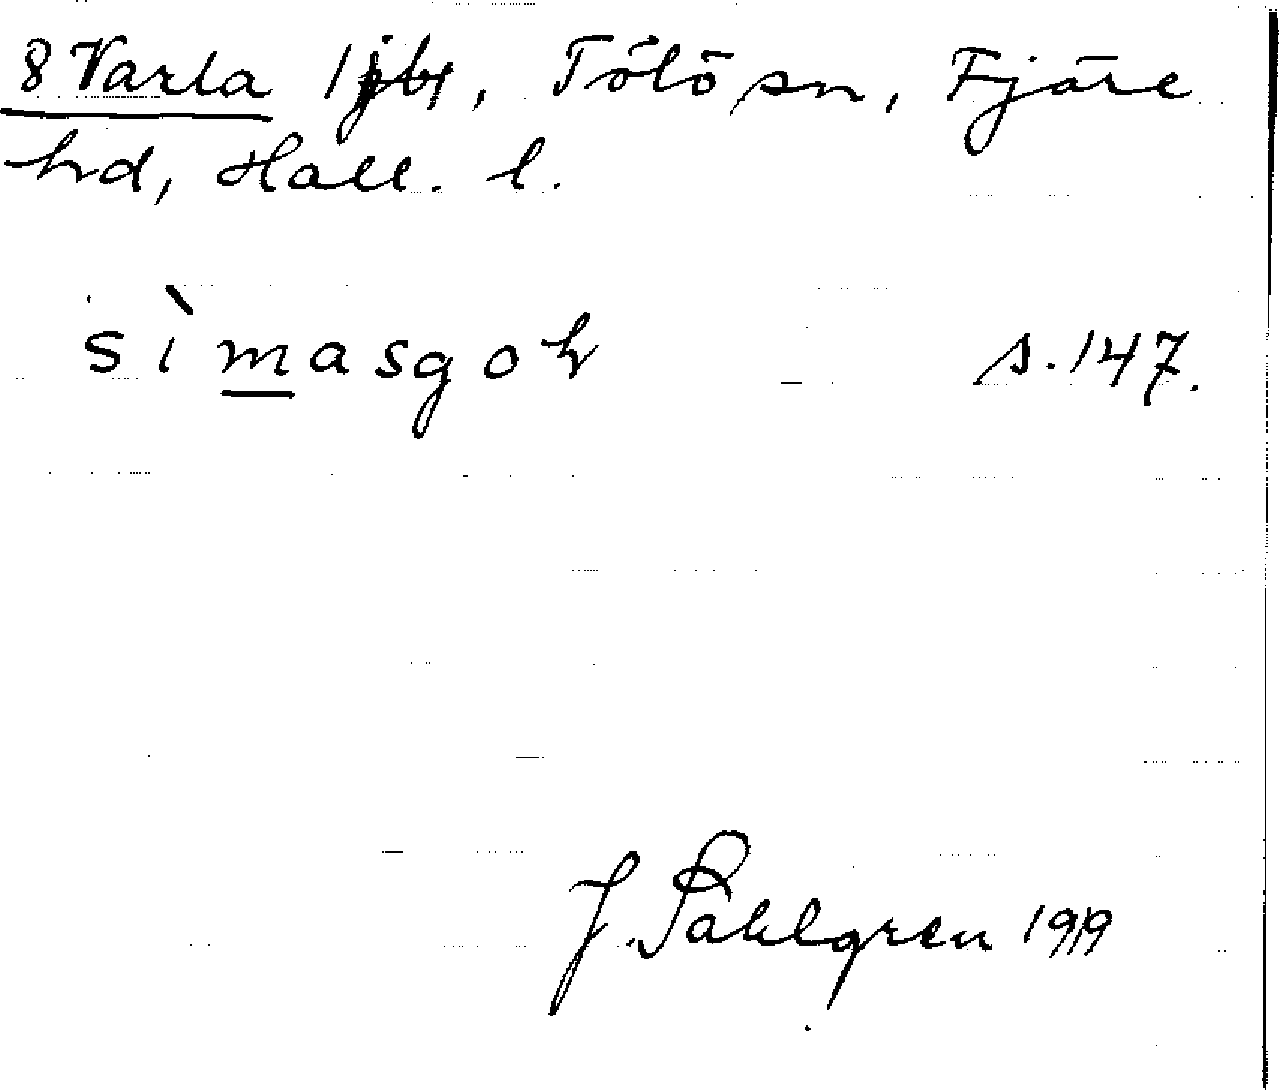 8 Varla 1 jbt, Tölö sn, Fjäre
hd, Hall. l.
sìmasgoh s. 147.
J. Sahlgren 1919